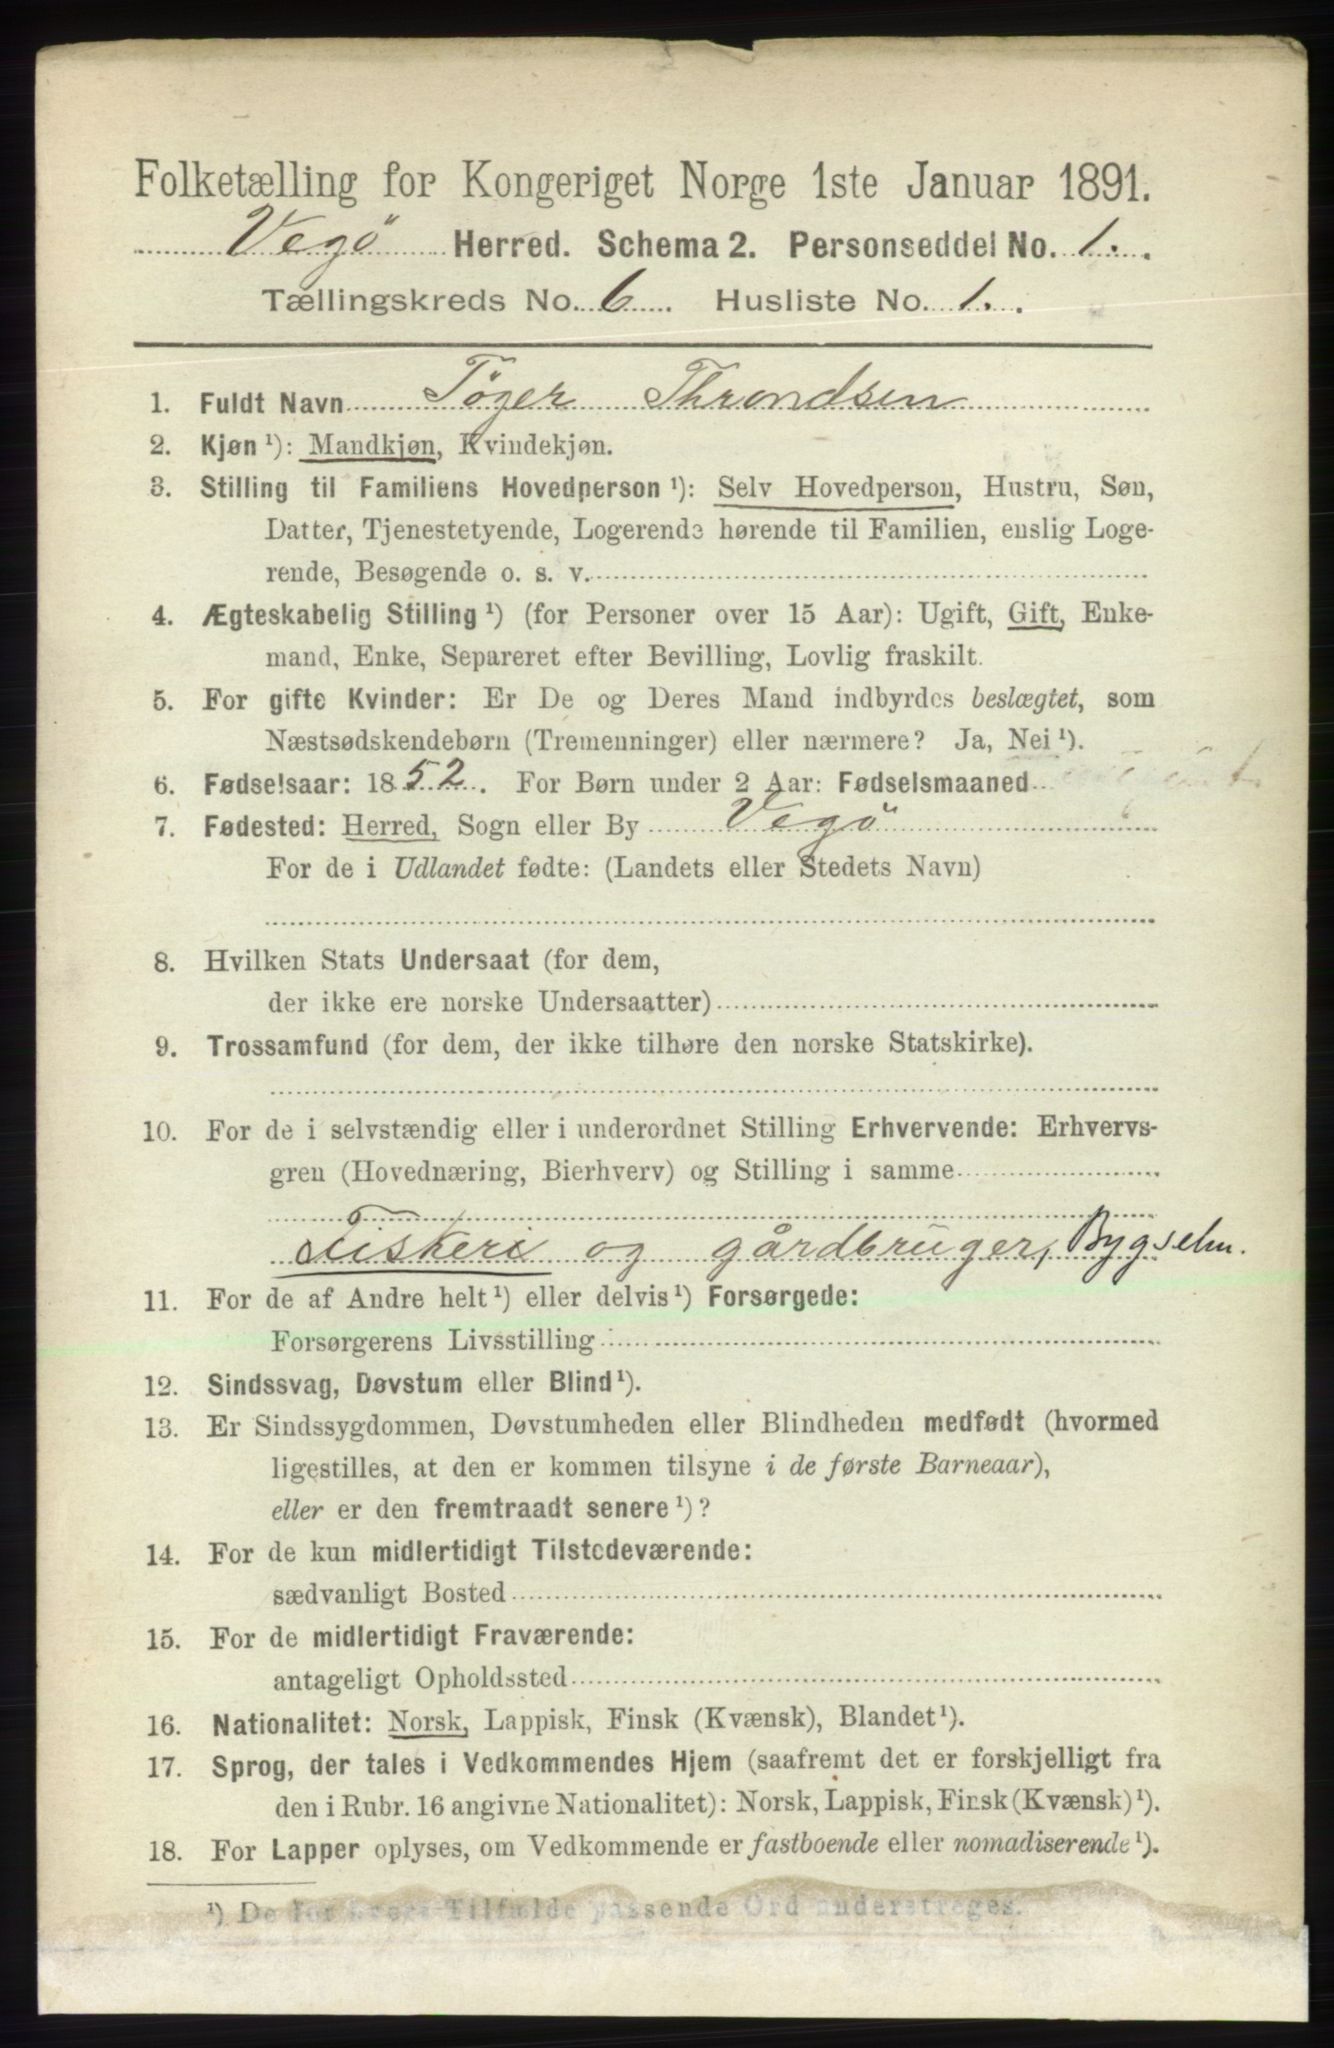 Folketælling for Kongeriget Norge 1ste Januar 1891.
Vegö Herred. Schema 2. Personseddel No. 1.
Tællingskreds No. 6. Husliste No. 1.
1. Fuldt Navn Töger Throndsen
2. Kjøn ¹): Mandkjøn, Kvindekjøn.
3. Stilling til Familiens Hovedperson ¹): Selv Hovedperson, Hustru, Søn,
Datter, Tjenestetyende, Logerende hørende til Familien, enslig Loge-
rende, Besøgende o. s. v.
4. Ægteskabelig Stilling ¹) (for Personer over 15 Aar): Ugift, Gift, Enke-
mand, Enke, Separeret efter Bevilling, Lovlig fraskilt.
5. For gifte Kvinder: Er De og Deres Mand indbyrdes beslægtet, som
Næstsødskendebørn (Tremenninger) eller nærmere? Ja, Nei ¹).
6. Fødselsaar: 1852. For Børn under 2 Aar: Fødselsmaaned
7. Fødested: Herred, Sogn eller By Vegö
For de i Udlandet fødte: (Landets eller Stedets Navn)
8. Hvilken Stats Undersaat (for dem,
der ikke ere norske Undersaatter)
9. Trossamfund (for dem, der ikke tilhøre den norske Statskirke).
10. For de i selvstændig eller i underordnet Stilling Erhvervende: Erhvervs-
gren (Hovednæring, Bierhverv) og Stilling i samme
Fiskeri og gårdbruger, Bygselm.
11. For de af Andre helt ¹) eller delvis ¹) Forsørgede:
Forsørgerens Livsstilling
12. Sindssvag, Døvstum eller Blind ¹).
13. Er Sindssygdommen, Døvstumheden eller Blindheden medfødt (hvormed
ligestilles, at den er kommen tilsyne i de første Barneaar),
eller er den fremtraadt senere ¹)?
14. For de kun midlertidigt Tilstedeværende:
sædvanligt Bosted
15. For de midlertidigt Fraværende:
antageligt Opholdssted
16. Nationalitet: Norsk, Lappisk, Finsk (Kvænsk), Blandet ¹).
17. Sprog, der tales i Vedkommendes Hjem (saafremt det er forskjelligt fra
den i Rubr. 16 angivne Nationalitet): Norsk, Lappisk, Finsk (Kvænsk) ¹).
18. For Lapper oplyses, om Vedkommende er fastboende eller nomadiserende ¹).
¹) De for hvert Tilfælde passende Ord understreges.